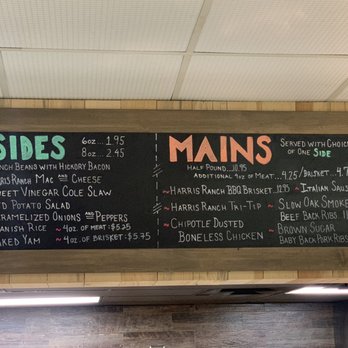 SIDES 6oz... 1.95
8oz... 2.45
BEANS WITH HICKORY BACON
RANCH MAC AND CHEESE
SWEET VINEGAR COLE SLAW
RED POTATO SALAD
CARAMELIZED ONIONS AND PEPPERS
SPANISH RICE ~ 4oz OF MEAT: $5.25
BAKED YAM ~ 4oz OF BRISKET: $5.75
MAINS SERVED WITH CHOICE
OF ONE SIDE
HALF POUND... 10.95
ADDITIONAL 4oz OF MEAT... 4.25/BRISKET... 4.7
~ HARRIS RANCH BBQ BRISKET 12.95
~ HARRIS RANCH TRI-TIP
~ CHIPOTLE DUSTED
BONELESS CHICKEN
~ ITALIAN
~ SLOW OAK SMOKE
BEEF BACK RIBS
~ BROWN SUGAR
BABY BACK PORK RIBS